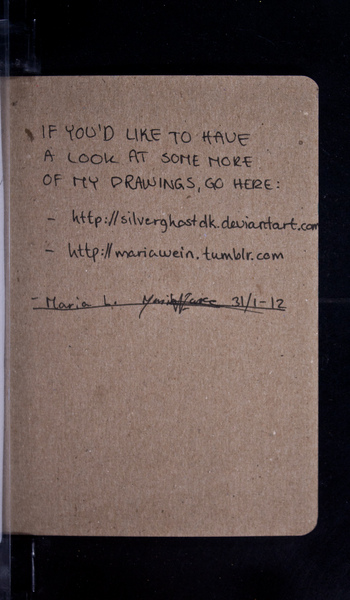 IF YOU'D LIKE TO HAVE
A LOOK AT SOME MORE
OF MY DRAWINGS, GO HERE:
- http://silverghostdk.deviantart.com
- http://mariawein.tumblr.com
- Maria L. 31/1-12